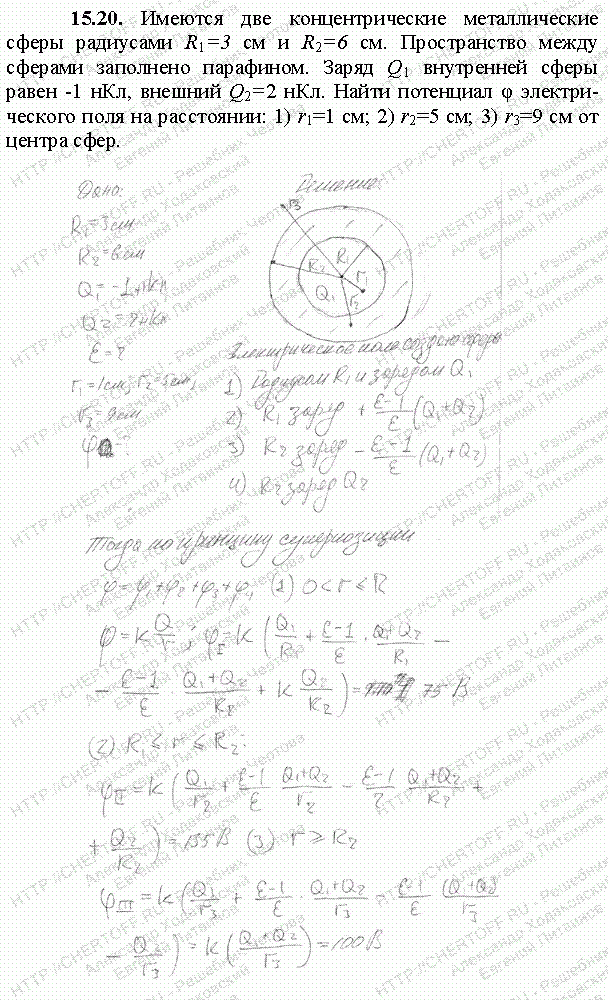 15.20. Имеются две концентрические металлические
сферы радиусами R₁=3 см и R₂=6 см. Пространство между
сферами заполнено парафином. Заряд Q₁ внутренней сферы
равен -1 нКл, внешний Q₂=2 нКл. Найти потенциал φ электри-
ческого поля на расстоянии: 1) r₁=1 см; 2) r₂=5 см; 3) r₃=9 см от
центра сфер.
Дано: Решение
R₂=3см
R₂=6см
Q₁=-1нКл
Q₂=2нКл
ε=2
r₁=1см, r₂=5см,
r₃=9см
φ ?
r₃
R₂ R₁ r₁
Q₁ r₂
Электрическое поле создано
1) Радиусом R₁ и зарядом Q₁
2) R₁ заряд + (ε-1)/ε (Q₁+Q₂)
3) R₂ заряд - (ε-1)/ε (Q₁+Q₂)
4) R₂ заряд Q₂
Тогда по принципу суперпозиции
φ=φ₁+φ₂+φ₃+φ₁ (1) 0<r≤R
φ=k Q/r; φ_I=k (Q₁/R₁ + (ε-1)/ε · (Q₁+Q₂)/R₁ -
- (ε-1)/ε · (Q₁+Q₂)/R₂ + k Q₂/R₂) = 75 В
(2) R₁≤r≤R₂:
φ_II=k (Q₁/r₂ + (ε-1)/ε (Q₁+Q₂)/r₂ - (ε-1)/2 (Q₁+Q₂)/R₂ +
+ Q₂/R₂) = 135 В (3) r≥R₂
φ_III=k (Q₁/r₃ + (ε-1)/ε · (Q₁+Q₂)/r₃ - (ε-1)/ε (Q₁+Q₂)/r₃
- Q₂/r₃) = k (Q₁+Q₂)/r₃) = 100 В
HTTP://CHERTOFF.RU - Решебник Чертова
Александр Ходаковский
Евгений Литвинов